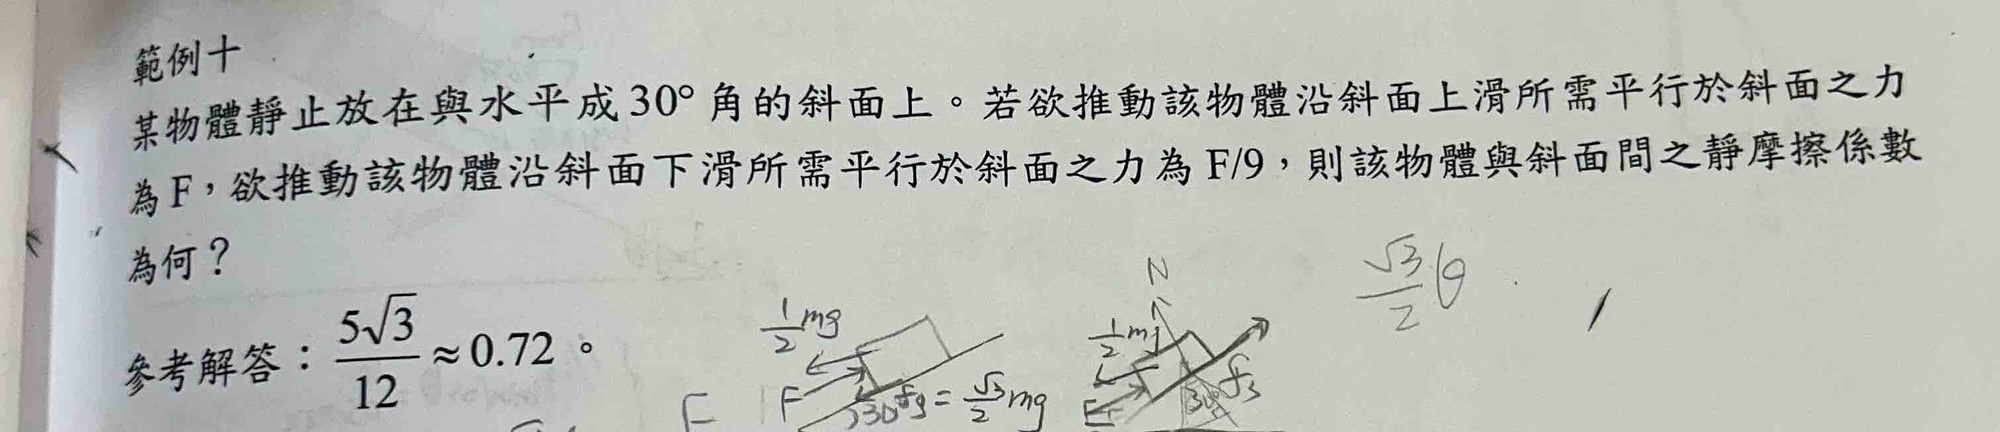 範例十
某物體靜止放在與水平成30°角的斜面上。若欲推動該物體沿斜面上滑所需平行於斜面之力
為F，欲推動該物體沿斜面下滑所需平行於斜面之力為F/9，則該物體與斜面間之靜摩擦係數
為何？
參考解答：5√3/12≈0.72。
1/2 mg
F
30°
= √3/2 mg
F
N
1/2 mg
30°
fs
√3/2